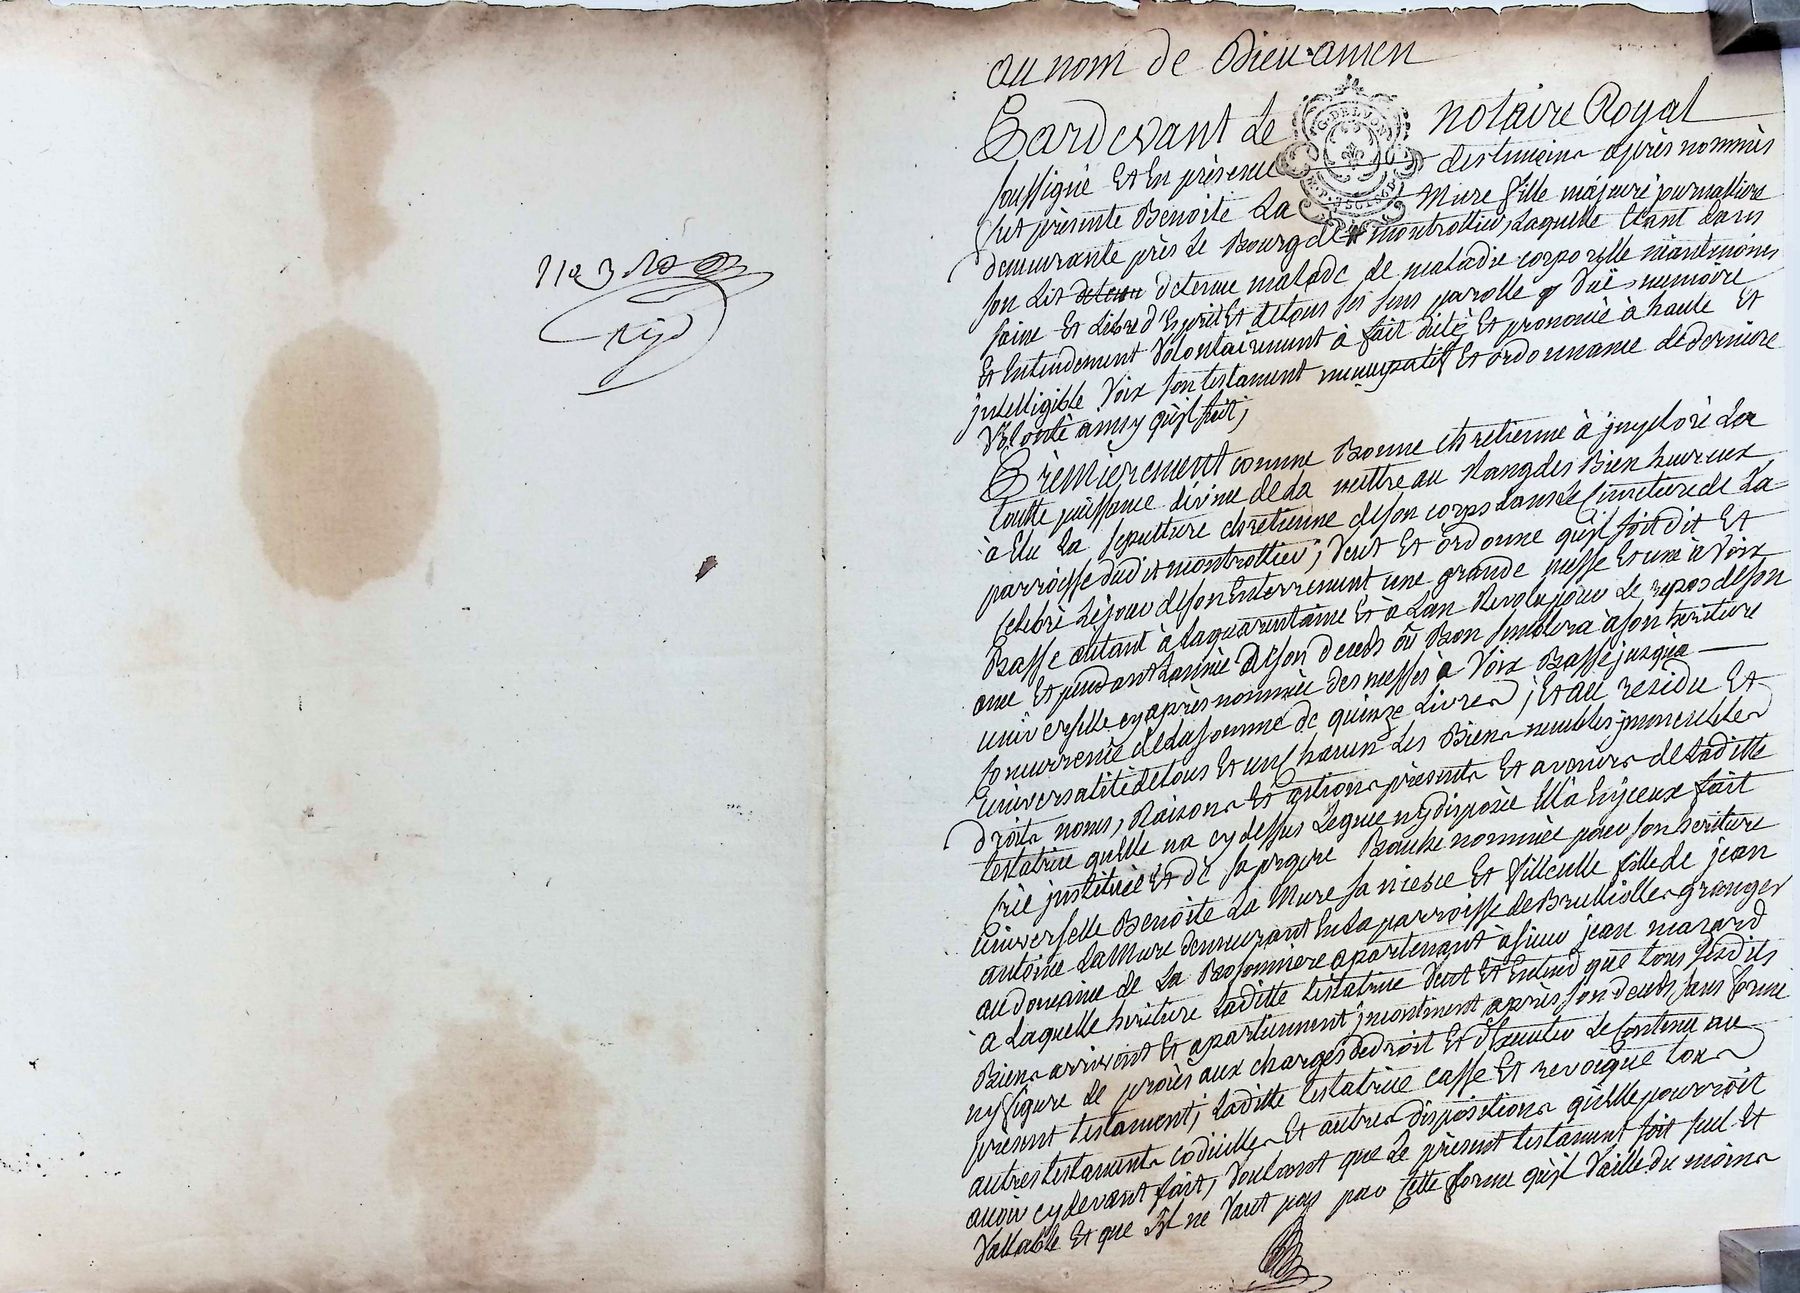 au nom de Dieu amen
Pardevant Le notaire Royal
soussigné Et En présence destemoins après nommés
fut présente Benoite La Mure fille majeure
demeurante près Le Bourg de montrottier, Laquelle Etant dans
son Lit detenue malade de maladie corporelle néantmoins
saine Et Libre d'Esprit Et detous ses sens parolle Vüe memoire
Et Entendement Volontairement à fait dicté Et prononcé à haute Et
jntelligible Voix son testament nuncupatif Et ordonnance dederniere
Volonté ainsy qüil suit;
Prèmierement comme Bonne chretienne à jmploré La
toutte puissance divine dela mettre au Rang des Bien heureux
à Elu La sepulture chretienne deson corps dans Le Cimetiere de La
parroisse dudit montrottier; Veut Et ordonne qüil soit dit Et
Celebré Lejour deson Enterrement une grande messe Et une à Voix
Basse autant à Laquarentaine Et à Lan Revolu pour Le repos deson
ame Et pendant Lannée deson decès où Bon semblera àson heritiere
universelle cyaprès nommée des messes à Voix Basse jusquà
Concurrence delasomme de quinze Livres; Et au residu Et
universalité detous Et unschacun Les Biens meubles jmmeubles
droits noms, Raisons Et actions présents Et avenirs deladitte
testatrice quelle na cy dessus Legué ny disposée Ella Enjceux fait
créé jnstituée Et de sa propre Bouche nommée pour son heritiere
universelle Benoite La Mure sa niesce Et filleulle fille de jean
antoine LaMure demeurant En La parroisse de Brullioles granger
au domaine de La apartenant àsieur jean mazard
à Laquelle heritiere Laditte testatrice Veut Et Entend que tous sesdits
Biens arrivent Et apartiennent jncontinent après son decès sans forme
ny figure de procès aux charges dedroit Et dExecuter Le Contenu au
présent testament; Laditte testatrice casse Et revoque tous
autres testaments codicilles Et autres dispositions qüelle pourroit
avoir cydevant fait, Voulant que Le présent testament soit seul Et
Vallable Et que sil ne Vaut pas par Cette forme qüil Vaille du moins